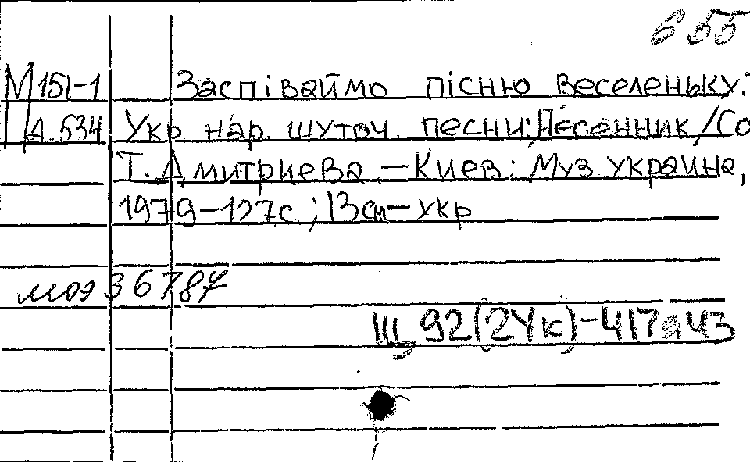 655
М151-1 Заспіваймо пісню веселеньку:
Д.534 Укр нар. шуточ. песни: Песенник/Со
Т. Дмитриева – Киев: Муз украина,
1979–127с; 13см – укр
моэ 36787
Щ 92(2Ук)-417я43